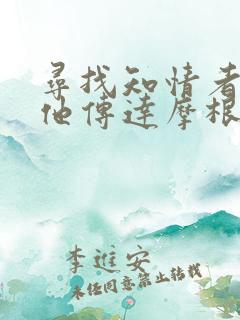 尋找知情者
他傳達摩根
李進安
未經同意禁止轉載